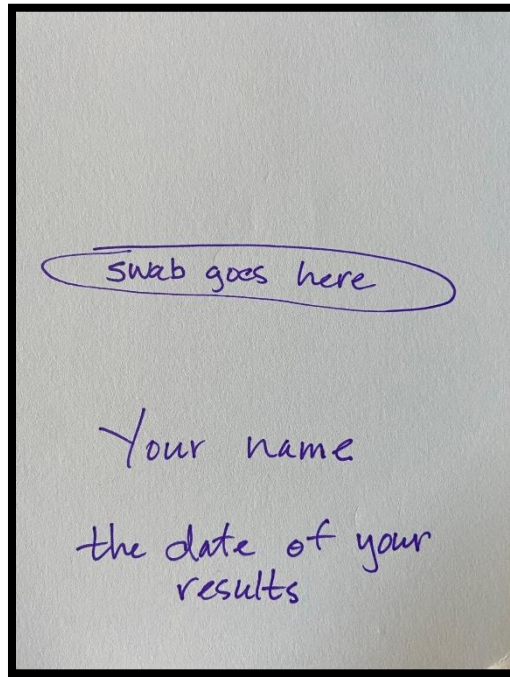 swab goes here
Your name
the date of your
results